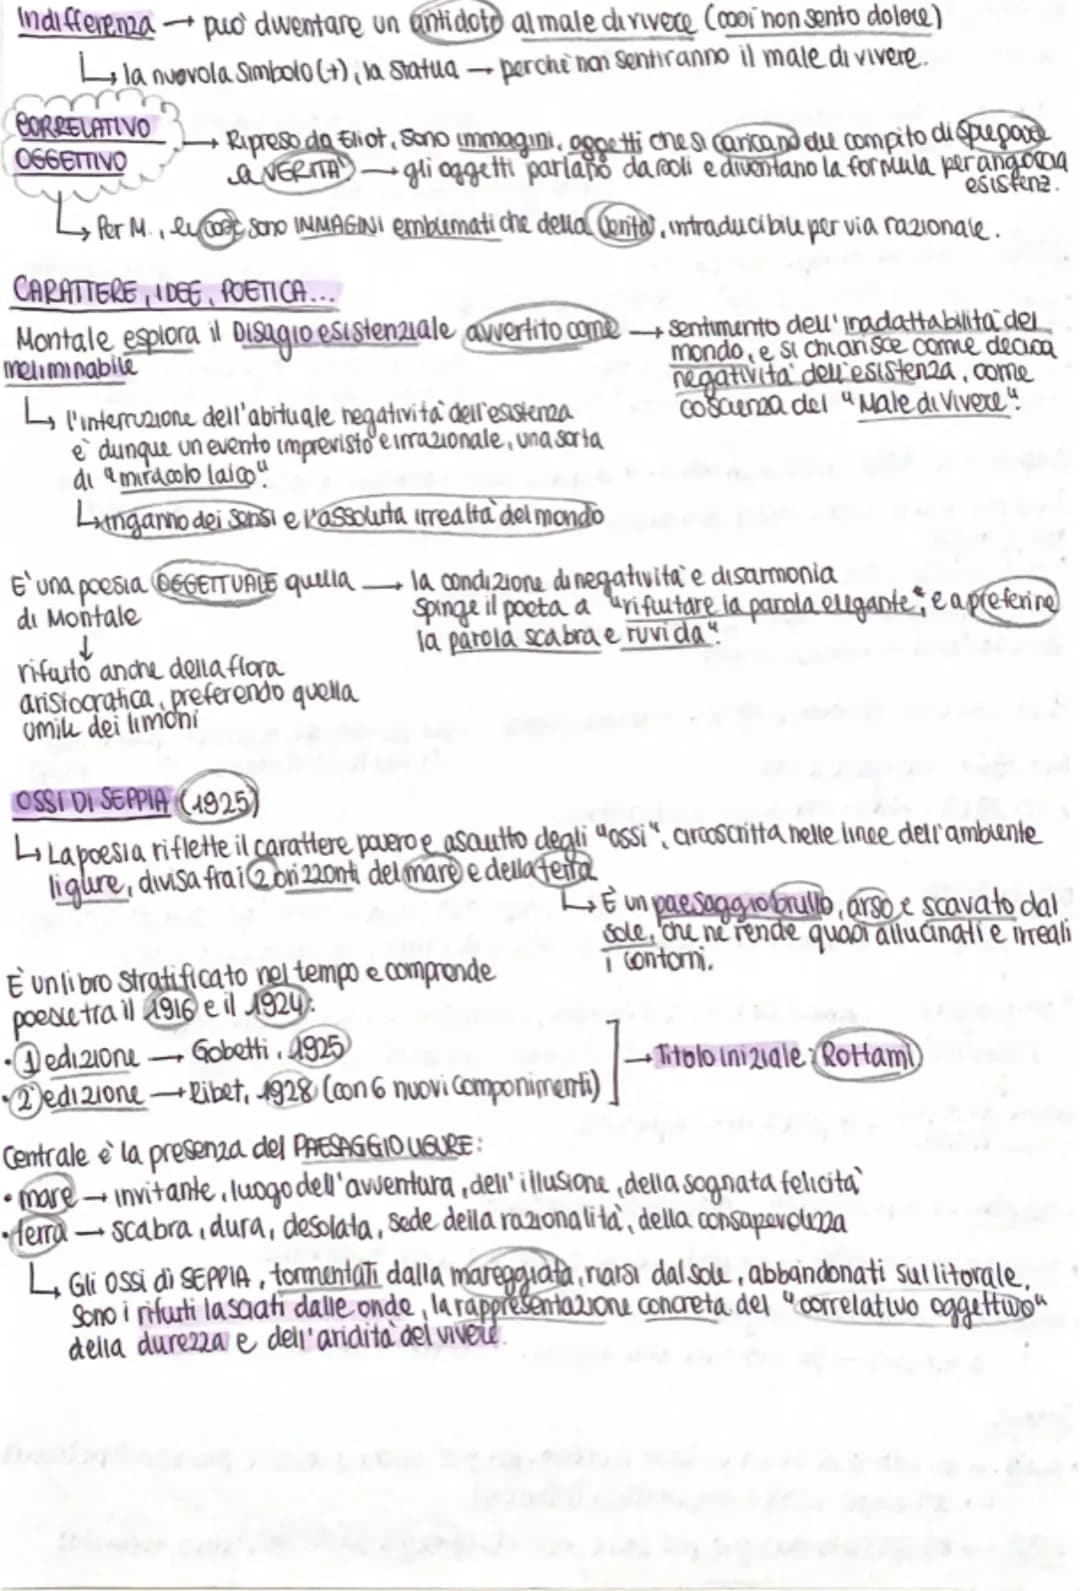 Indifferenza → può diventare un antidoto al male di vivere (così non sento dolore)
↳ la nuvola simbolo (+), la statua → perché non sentiranno il male di vivere.
CORRELATIVO
OGGETTIVO
→ Ripreso da Eliot, sono immagini, oggetti che si caricano del compito di spiegare
la VERITÀ → gli oggetti parlano da soli e diventano la formula per angoscia
esistenz.
↳ Per M., le cose sono IMMAGINI emblematiche della verità, intraducibile per via razionale.
CARATTERE, IDEE, POETICA...
Montale esplora il Disagio esistenziale avvertito come → sentimento dell'inadattabilità del
ineliminabile
mondo, e si chiarisce come decisa
negatività dell'esistenza, come
coscienza del "Male di Vivere".
↳ l'interruzione dell'abituale negatività dell'esistenza
è dunque un evento imprevisto e irrazionale, una sorta
di "miracolo laico"
↳ inganno dei sensi e l'assoluta irrealtà del mondo
E' una poesia OGGETTUALE quella → la condizione di negatività e disarmonia
di Montale
spinge il poeta a "rifiutare la parola elegante", e a preferire
la parola scabra e ruvida".
↓
rifiuto anche della flora
aristocratica, preferendo quella
umile dei limoni
OSSI DI SEPPIA (1925)
↳ La poesia riflette il carattere povero e asciutto degli "ossi", circoscritta nelle linee dell'ambiente
ligure, divisa fra i 2 orizzonti del mare e della terra
↳ È un paesaggio brullo, arso e scavato dal
sole, che ne rende quasi allucinati e irreali
i contorni.
È un libro stratificato nel tempo e comprende
poesie tra il 1916 e il 1924:
• 1) edizione → Gobetti, 1925
• 2) edizione → Ribet, 1928 (con 6 nuovi componimenti)
→ Titolo iniziale: Rottami
Centrale è la presenza del PAESAGGIO LIGURE:
• mare → invitante, luogo dell'avventura, dell'illusione, della sognata felicità
• terra → scabra, dura, desolata, sede della razionalità, della consapevolezza
↳ Gli ossi di SEPPIA, tormentati dalla mareggiata, riarsi dal sole, abbandonati sul litorale.
Sono i rifiuti lasciati dalle onde, la rappresentazione concreta del "correlativo oggettivo"
della durezza e dell'aridità del vivere.